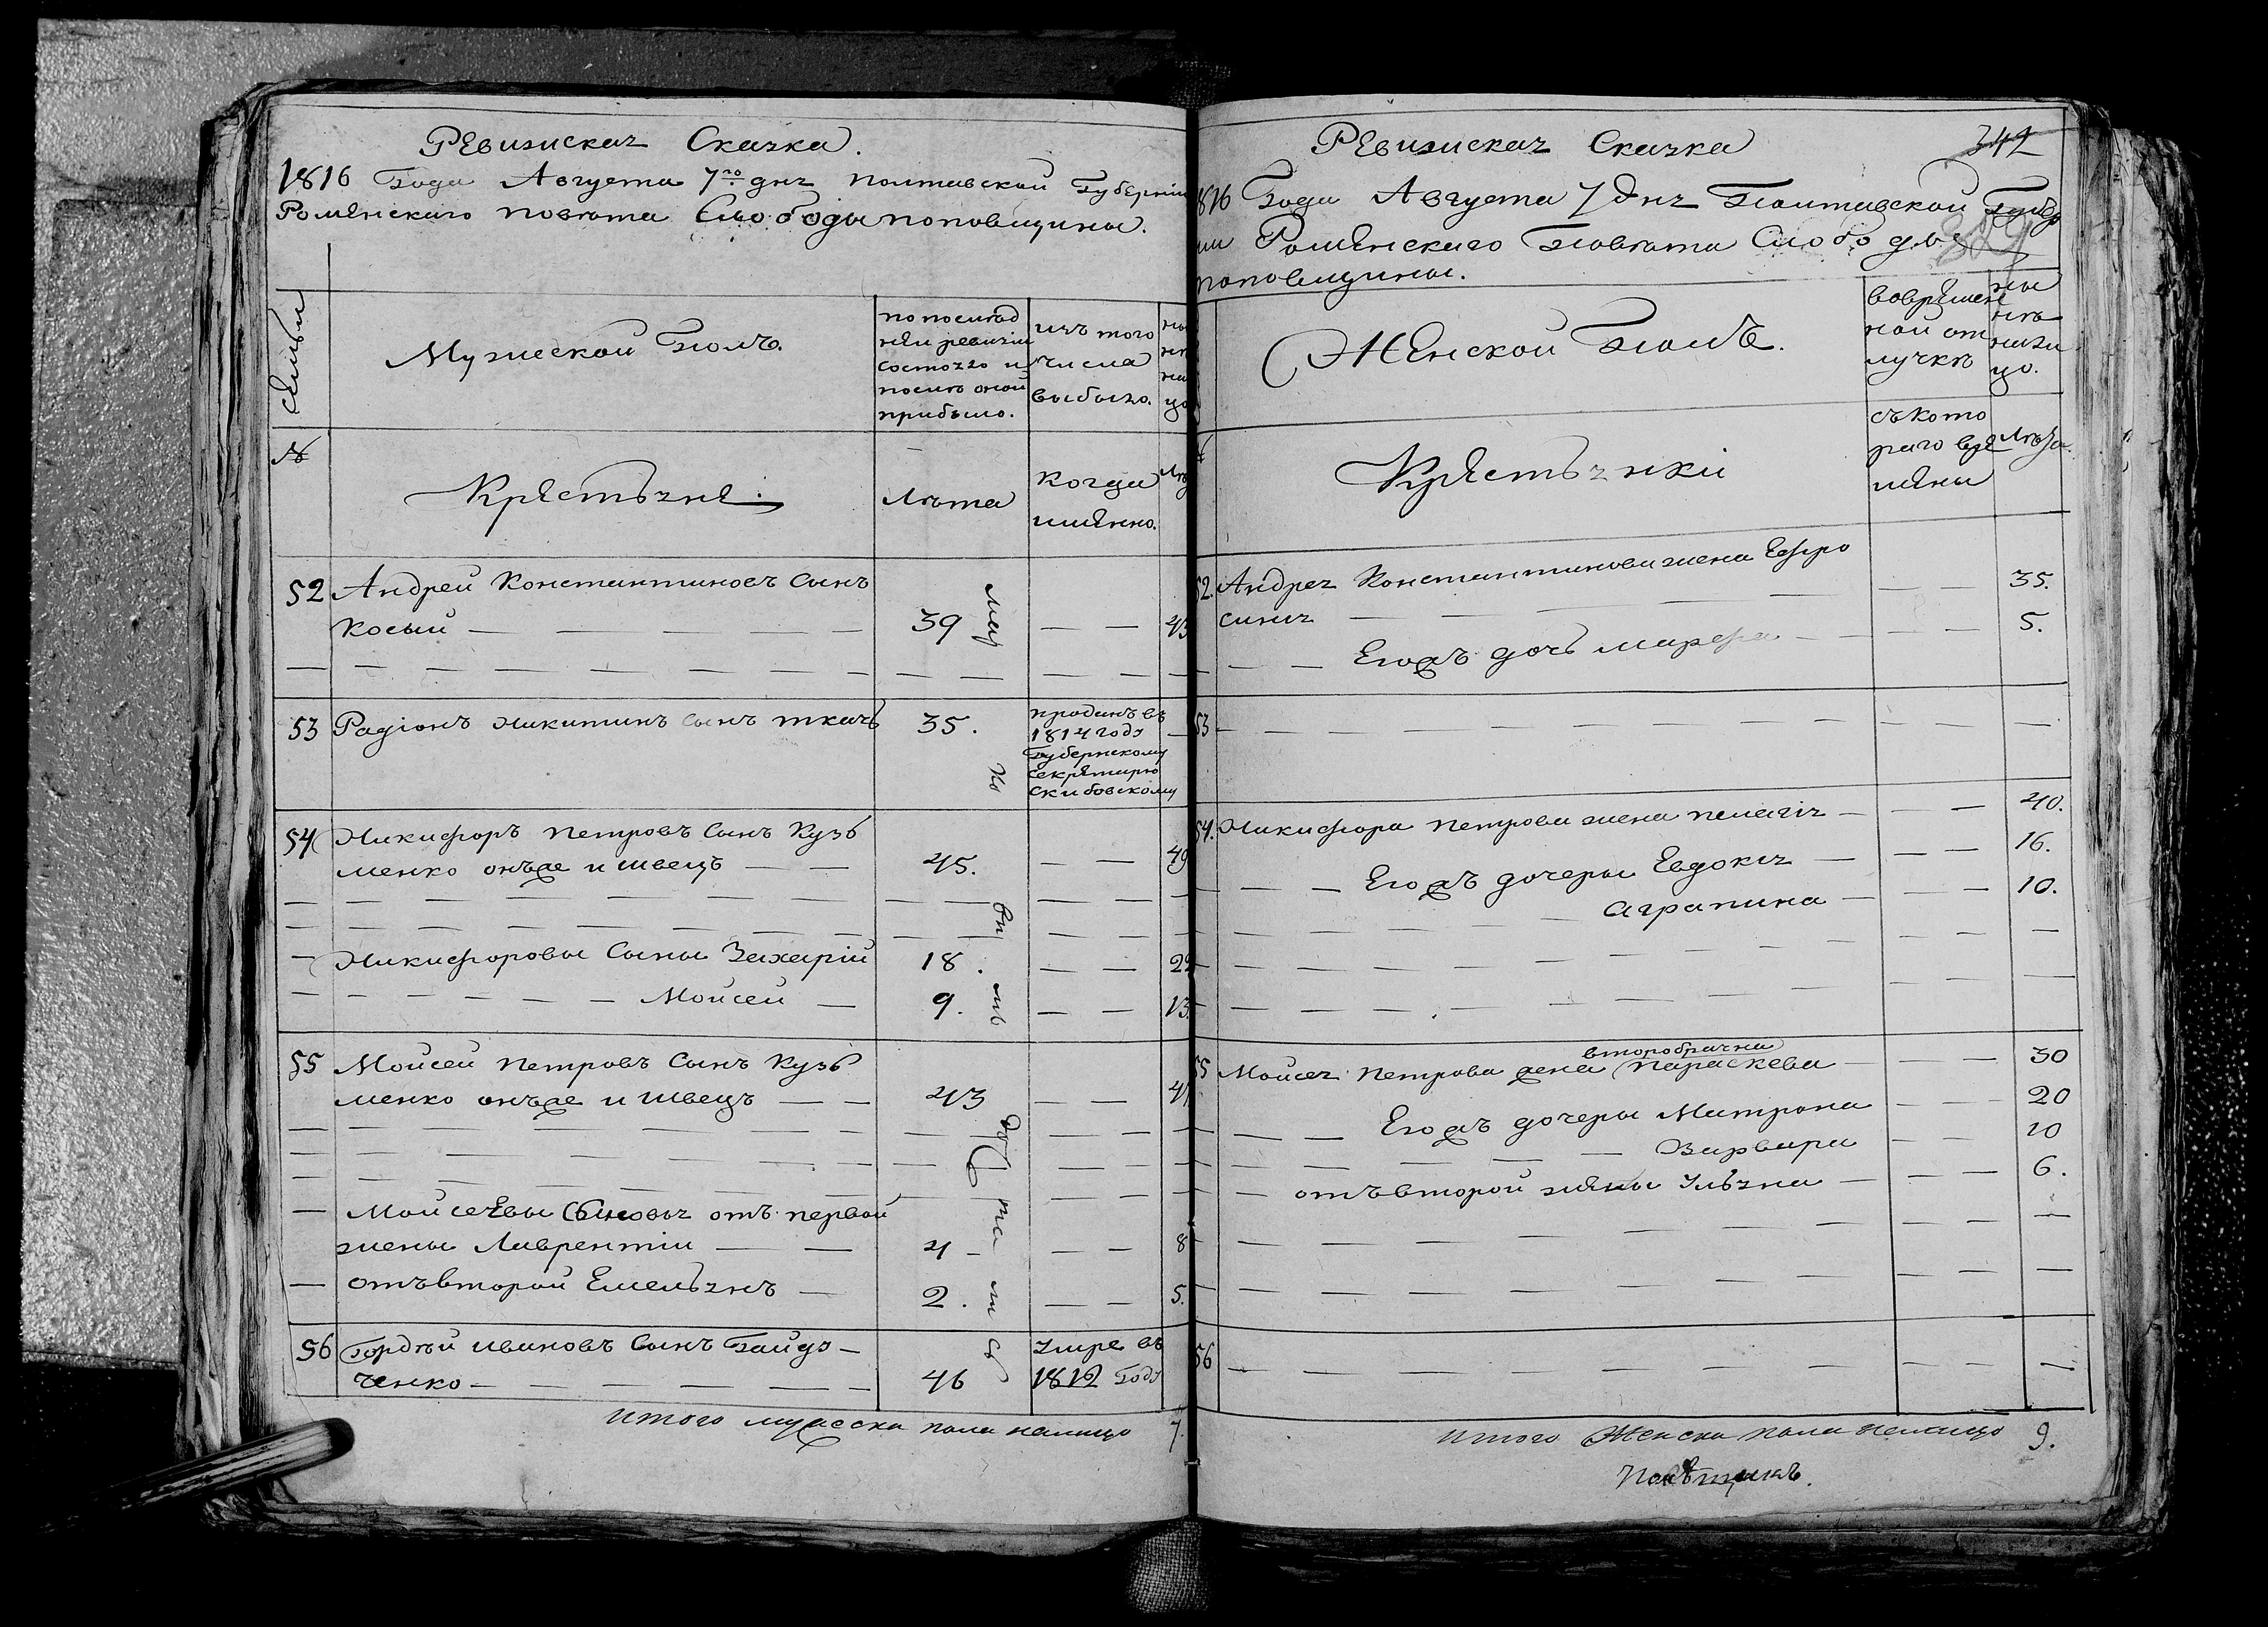 Ревизиская Сказка.
1816 Года Августа 7го дня полтавской Губерніи
Роменского повѣта Слободы поповщины.
Семьи
Мужеской Полъ.
по послѣд
ней ревизіи
состояло и
послѣ оной
прибыло.
изъ того
числа
выбыло.
№
Крестьяне.
Лѣта
когда
имянно.
52 Андрей Константиновъ Сынъ
Косый — 39 — 43
53 Радіонъ Никитинъ сынъ ткачь 35. проданъ въ
1814 году
Губернскому
секретарю
скибовскому
54 Никифоръ Петровъ Сынъ Кузь
менко онъже и швецъ — 45. — 49
Никифоровы Сыны Захарій 18. — 22
Моисей — 9. — 13.
55 Моисей Петровъ Сынъ Кузь
менко онъже и швецъ — 43 — 47
Моисеевы Сыновья отъ первой
жены Лаврентіи — 4 — 8
отъ второй Емельянъ — 2. — 5.
56 Гордѣй Ивановъ Сынъ Гайдя-
ченко — 46 Умре въ
1812 Году
итого мужеска пола налицо 7.
Ревизиская Сказка
342
1816 Года Августа 7 Дня Полтавской Губер
ніи Роменского Повѣта Слободы
поповщины.
Женской Полъ.
вовремен
ной от
лучкѣ
ны
нѣ
нали
цо.
Крестьянкіи
съ кото
раго вре
мѣны
Лѣта
52. Андрея Константинова жена Евфро
синия — 35.
Егожъ дочь марфа — 5.
53
54. Никифора Петрова жена пелагія — 40.
Егожъ дочеры Евдокія — 16.
Аграпина — 10.
второбрачна
55 Моисея Петрова жена Параскева — 30
Егожъ дочеры Матрона — 20
Варвара — 10
отъ второй жены Ульяна — 6.
56
итого Женска пола налицо 9.